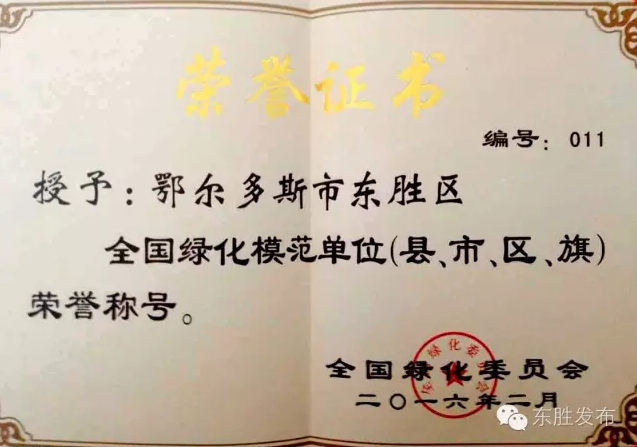 荣誉证书
编号：011
授予：鄂尔多斯市东胜区
全国绿化模范单位(县、市、区、旗)
荣誉称号。
全国绿化委员会
二〇一六年二月
东胜发布